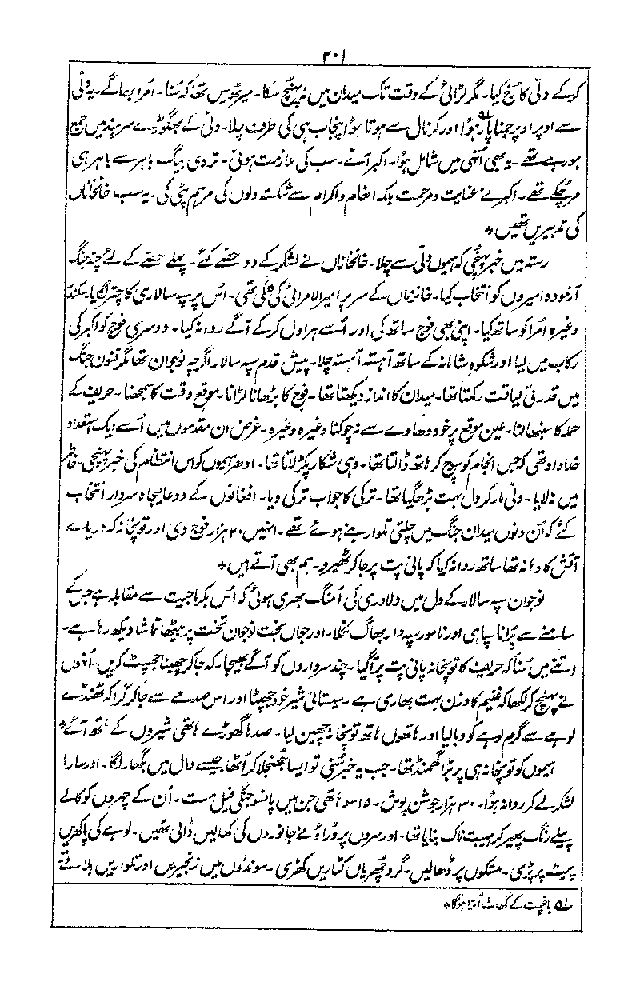 ۲۰۱
کرکے دلی کا رخ کیا۔ مگر لڑائی کے وقت تک میدان میں نہ پہنچ سکا۔ میرٹھ میں تھا کہ سُنا۔ اُمرا بھاگے۔ یہ دلی
سے اوپر اوپر جمنا پار ہوا اور کرنال سے ہوتا ہوا پنجاب ہی کی طرف چلا۔ دلی کے بھگوڑے سرہند میں جمع
ہو رہے تھے۔ یہ بھی اُنہی میں شامل ہوا۔ اکبر آئے۔ سب کی ملازمت ہوئی۔ تردی بیگ باہر سے باہر ہی
مرچکے تھے۔ اکبر نے عنایت و مرحمت بلکہ انعام و اکرام سے شکستہ دلوں کی مرہم پٹی کی۔ یہ سب خانخاناں
کی تدبیریں تھیں *
رستہ میں خبر پہنچی کہ ہیموں دلی سے چلا۔ خانخاناں نے لشکر کے دو حصّے کئے۔ پہلے حصّے کے لئے چند جنگ
آزمودہ امیروں کو انتخاب کیا۔ خانزماں کے سر پر امیر الامرائی کی کلغی تھی۔ اُس پر سپہ سالاری کا چتر لگایا۔ سکندر
وغیرہ امرا کو ساتھ کیا۔ اپنی بھی فوج ساتھ کی اور اُسے ہراول کرکے آگے روانہ کیا۔ دوسری فوج کو اکبر کی
رکاب میں لیا اور شکوہ شاہانہ کے ساتھ آہستہ آہستہ چلا۔ پیش قدم سپہ سالار اگرچہ نوجوان تھا مگر فنون جنگ
میں قدرتی لیاقت رکھتا تھا۔ میدان کا انداز دیکھتا تھا۔ فوج کا بڑھانا لڑانا۔ موقع وقت کا سمجھنا۔ حریف کے
حملہ کا سنبھالنا۔ عین موقع پر خود دھاوے سے نہ چوکنا وغیرہ وغیرہ۔ غرض ان مقدموں میں اُسے ایک استعداد
خداداد تھی کہ جس انجام کو سوچ کر ہاتھ ڈالتا تھا۔ وہی شکار پکڑ لاتا تھا۔ اُدھر ہیموں کو اس انتظام کی خبر پہنچی۔ خاطر
میں نہ لایا۔ دلی مار کر دل بہت بڑھ گیا تھا۔ ترکی کا جواب ترکی دیا۔ افغانوں کے دو عالیجاہ سردار انتخاب
کئے کہ اُن دنوں میدان جنگ میں چلتی تلوار بنے ہوئے تھے۔ اُنہیں ۲۰ ہزار فوج دی اور توپخانہ کہ دریائے
آتش کا دہانہ تھا ساتھ روانہ کیا کہ پانی پت پر جا کر ٹھیرو۔ ہم بھی آتے ہیں *
نوجوان سپہ سالار کے دل میں دلاوری کی اُمنگ بھری ہوئی کہ اُس بکرماجیت سے مقابلہ ہے جس کے
سامنے سے پُرانا سپاہی اور نامور سپہ دار بھاگ نکلا۔ اور جواں بخت نوجوان تخت پر بیٹھا تماشا دیکھ رہا ہے۔
اتنے میں سُنا کہ حریف کا توپخانہ پانی پت پر آگیا۔ چند سرداروں کو آگے بھیجا۔ کہ جا کر چھینا جھپٹ کریں۔ اُنہوں
نے پہنچ کر لکھا کہ غنیم کا وزن بہت بھاری ہے۔ سیستانی شیر خود جھپٹا اور اس صدمے سے جا کر گرا کہ ٹھنڈے
لوہے سے گرم لوہے کو دبا لیا اور ہاتھوں ہاتھ توپخانہ چھین لیا۔ صدہا گھوڑے ہاتھی شیروں کے ہاتھ آئے*
ہیموں کو توپخانہ ہی پر بڑا گھمنڈ تھا۔ جب یہ خبر سُنی تو ایسا جھنجلا کر اُٹھا جیسے دال میں بگھار لگا۔ اور سارا
لشکر لے کر روانہ ہوا۔ ۳۰ ہزار جوشن پوش۔ ۱۵ سو ہاتھی جن میں پانسو جنگی فیل مست۔ اُن کے چہروں کو کالے
پیلے رنگ پھیر کر ہیبت ناک بنایا تھا۔ اور سروں پر ڈراؤنے جانوروں کی کھالیں ڈالی تھیں۔ لوہے کی پاکھریں
پیٹ پر پڑی۔ مستکوں پر ڈھالیں۔ گرد چھریاں کٹاریں کھڑی۔ سونڈوں میں زنجیریں اور تلواریں ہلاتے
لہ باغپت کے گھاٹ اُترا ہوگا *